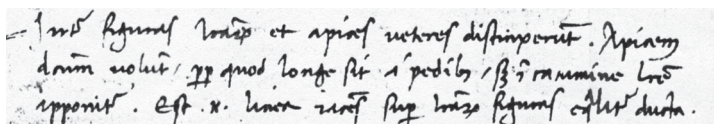 Int̄ figuras lrarꝝ et apices veteres distinxerūt. Apicem
dictum volūt, ꝓp quod longe sit a pedibꝫ, sꝫ ī cacumine lrē
apponit̄. Est .n. linea iacēs sup̄ lrarꝝ figuras eqlit̄ ducta.